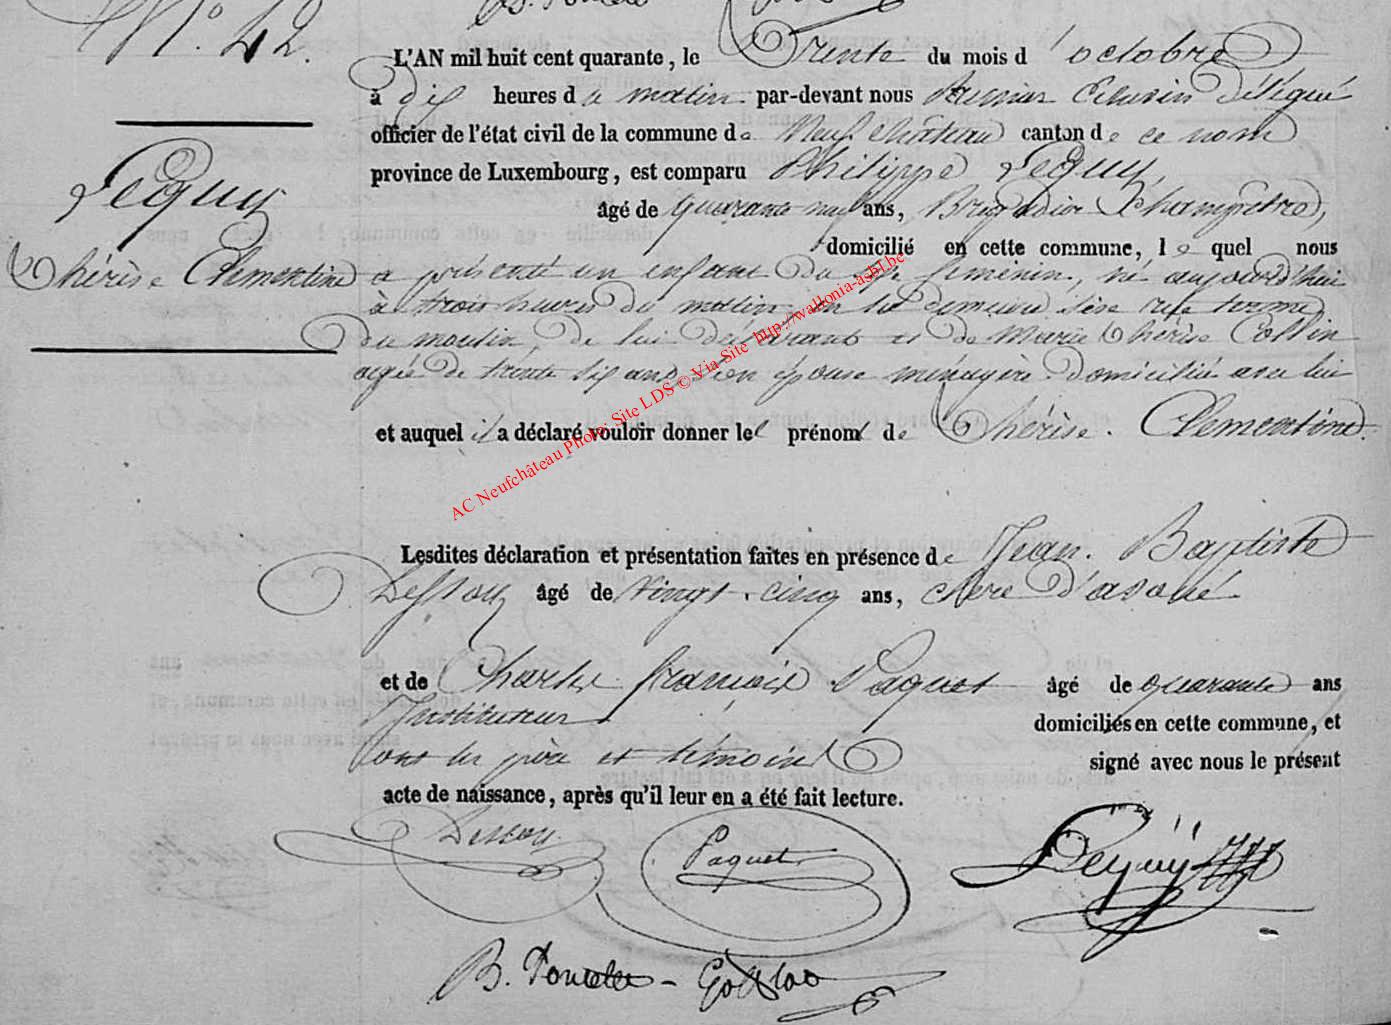 N°. 42.
L'AN mil huit cent quarante, le Trente du mois d'octobre
à dix heures du matin par-devant nous premier Echevin Délégué
officier de l'état civil de la commune de Neufchâteau canton de ce nom
province de Luxembourg, est comparu Philippe Pequy,
âgé de quarante neuf ans, Brigadier Champêtre,
domicilié en cette commune, le quel nous
a présenté un enfant du sexe feminin, né aujourd'hui
à trois heures du matin, en sa demeure sise rue
du moulin, de lui déclarant et de Marie Thérèse Collin
agée de trente six ans son épouse ménagère domiciliée avec lui
et auquel il a déclaré vouloir donner le prénom de Thérèse. Clementine.
Pequy
Thérèse Clementine
Lesdites déclaration et présentation faites en présence de Jean. Baptiste
Dessoy âgé de vingt-cinq ans, clerc d'avoué
et de Charles françois Paquet âgé de quarante ans
Instituteur domiciliés en cette commune, et
ont les père et témoins signé avec nous le présent
acte de naissance, après qu'il leur en a été fait lecture.
Dessoy Paquet Pequÿ
B. Poncelet
AC Neufchâteau Photo: Site LDS © Via Site http://wallonia-asbl.be